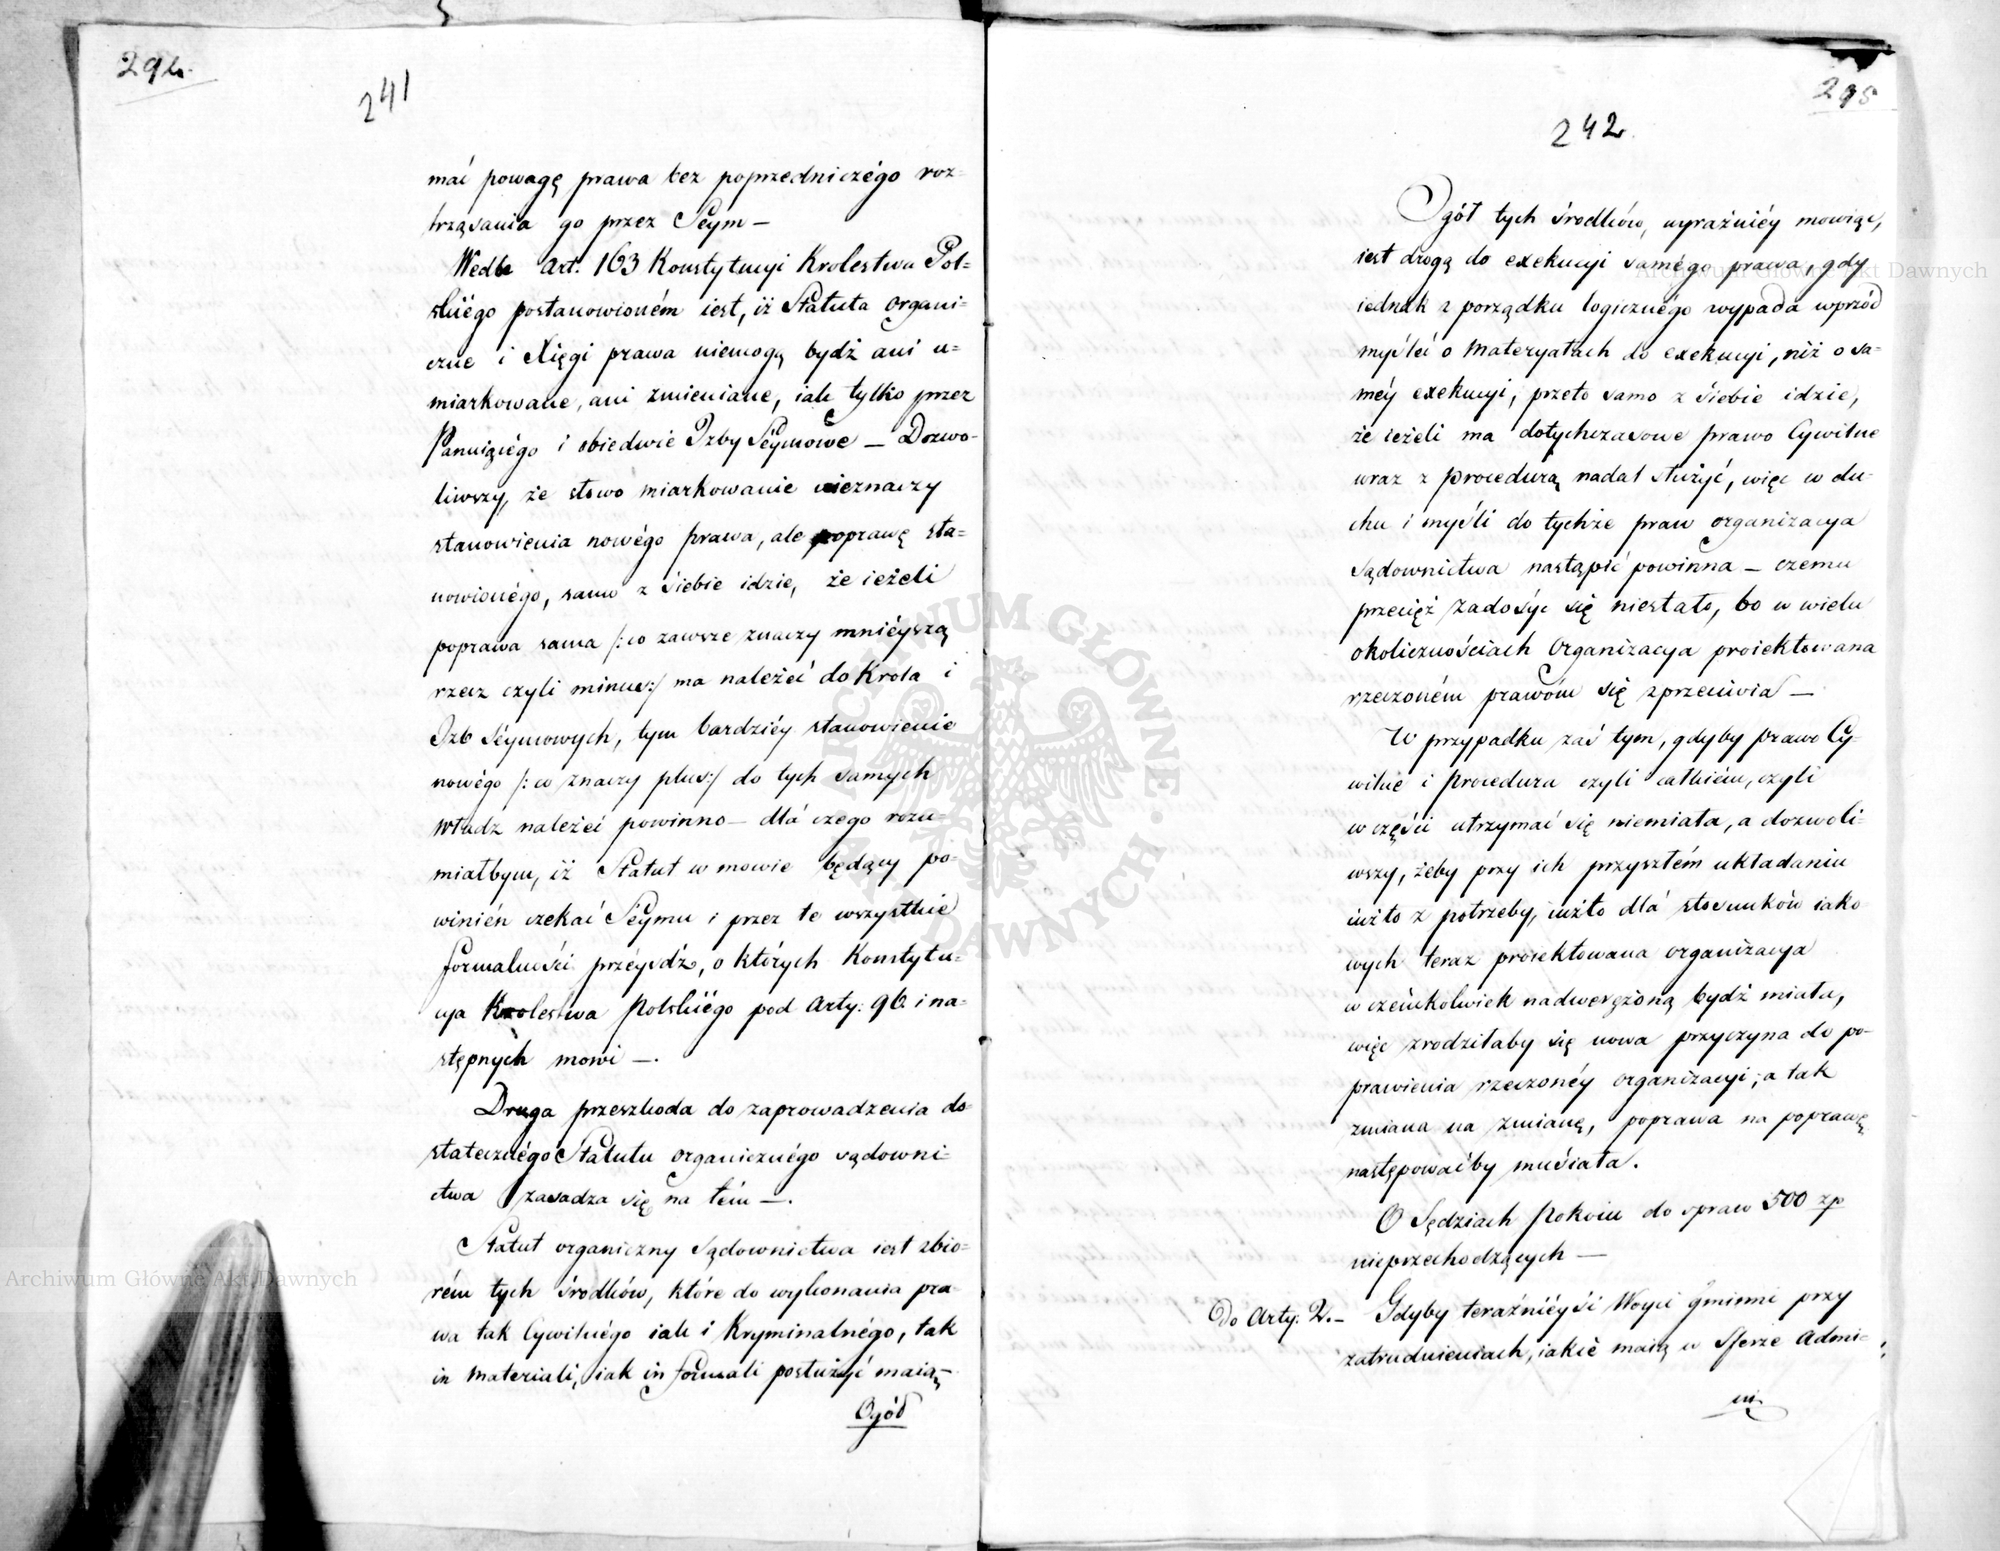 294.
241
mai powagę prawa bez poprzedniczégo roz-
trząsania go przez Seym —
Wedle Art. 163 Konstytucyi Krolestwa Pol-
skiégo postanowioném iest, iż Statuta Organi-
czne i Xięgi prawa niemogą bydź ani u-
miarkowane, ani zmieniane, iak tylko przez
Panuiącégo i obiedwie Izby Séymowe — Dozwo-
liwszy, że słowo miarkowanie nieznaczy
stanowienia nowégo prawa, ale poprawę sta-
nowionégo, samo z siebie idzie, że ieżeli
poprawa sama /: co zawsze znaczy mniéyszą
rzecz czyli minus :/ ma należéć do Krola i
Izb Séymowych, tym bardziéy stanowienie
nowégo /: co znaczy plus :/ do tych samych
Władz należéć powinno — dla czego rozu-
miałbym, iż Statut w mowie będący po-
winién czekać Seymu i przez te wszystkie
formalności przéyśdź, o których Konstytu-
cya Krolestwa Polskiégo pod Arty: 96. i na-
stępnych mowi —.
Druga przeszkoda do zaprowadzenia do-
statecznégo Statutu organicznégo sądowni-
ctwa zasadza się na tém —.
Statut organiczny Sądownictwa iest zbio-
rém tych środków, które do wykonania pra-
wa tak Cywilnégo iak i Kryminalnégo, tak
in materiali, iak in formali posłużyć maią —
Ogół
295
242.
Ogół tych środków, wyraźniéy mowiąc,
iest drogą do exekucyi samégo prawa, gdy
iednak z porządku logicznégo wypada wprzód
myśléć o Materyałach do exekucyi, niż o sa-
méy exekucyi, przeto samo z siebie idzie,
że ieżeli ma dotychczasowe prawo Cywilne
wraz z procedurą nadal służyć, więc w du-
chu i myśli do tychże praw organizacya
Sądownictwa nastąpić powinna — czemu
przecięż zadosyć się niestało, bo w wielu
okolicznościach Organizacya proiektowana
rzeczoném prawóm się sprzeciwia —
W przypadku zaś tym, gdyby prawo Cy-
wilne i procedura czyli całkiém, czyli
w części utrzymać się niemiała, a dozwoli-
wszy, żeby przy ich przyszłém układaniu
iużto z potrzeby, iużto dla stosunków iako-
wych teraz proiektowana organizacya
w czémkolwiek nadweręzoną bydź miała,
więc zrodziłaby się nowa przyczyna do po-
prawienia rzeczonéy organizacyi; a tak
zmiana na zmianę, poprawa na poprawę
następowaćby musiała.
O Sędziach Pokoiu do spraw 500 zp
nieprzechodzących —
do Arty: 2. — Gdyby teraźniéysi Woyci gminni przy
zatrudnieniach, iakié maią w Sferze Admi-
ni
Archiwum Główne Akt Dawnych
Archiwum Główne Akt Dawnych
ARCHIWUM GŁÓWNE AKT DAWNYCH